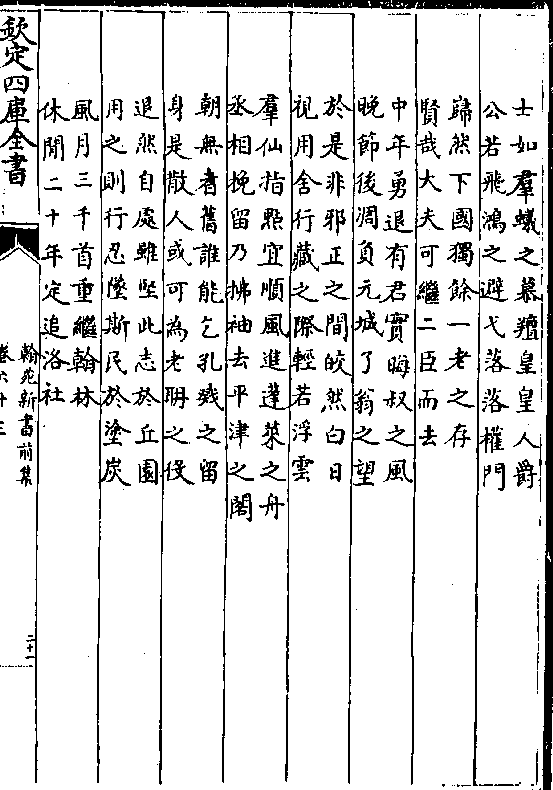 士如羣蟻之慕羶皇皇人爵
公若飛鴻之避弋落落權門
巋然下國獨餘一老之存
賢哉大夫可繼二臣而去
中年勇退有君實晦叔之風
晚節後凋負元城了翁之望
於是非邪正之間皎然白日
視用舍行藏之際輕若浮雲
羣仙指點宜順風進蓬萊之舟
丞相挽留乃拂袖去平津之閣
朝無耆舊誰能乞孔戣之留
身是散人或可為老聃之役
退然自處雖堅此志於丘園
用之則行忍墜斯民於塗炭
風月三千首重繼翰林
休閒二十年定追洛社
欽定四庫全書
翰苑新書前集
卷六十三
二十一